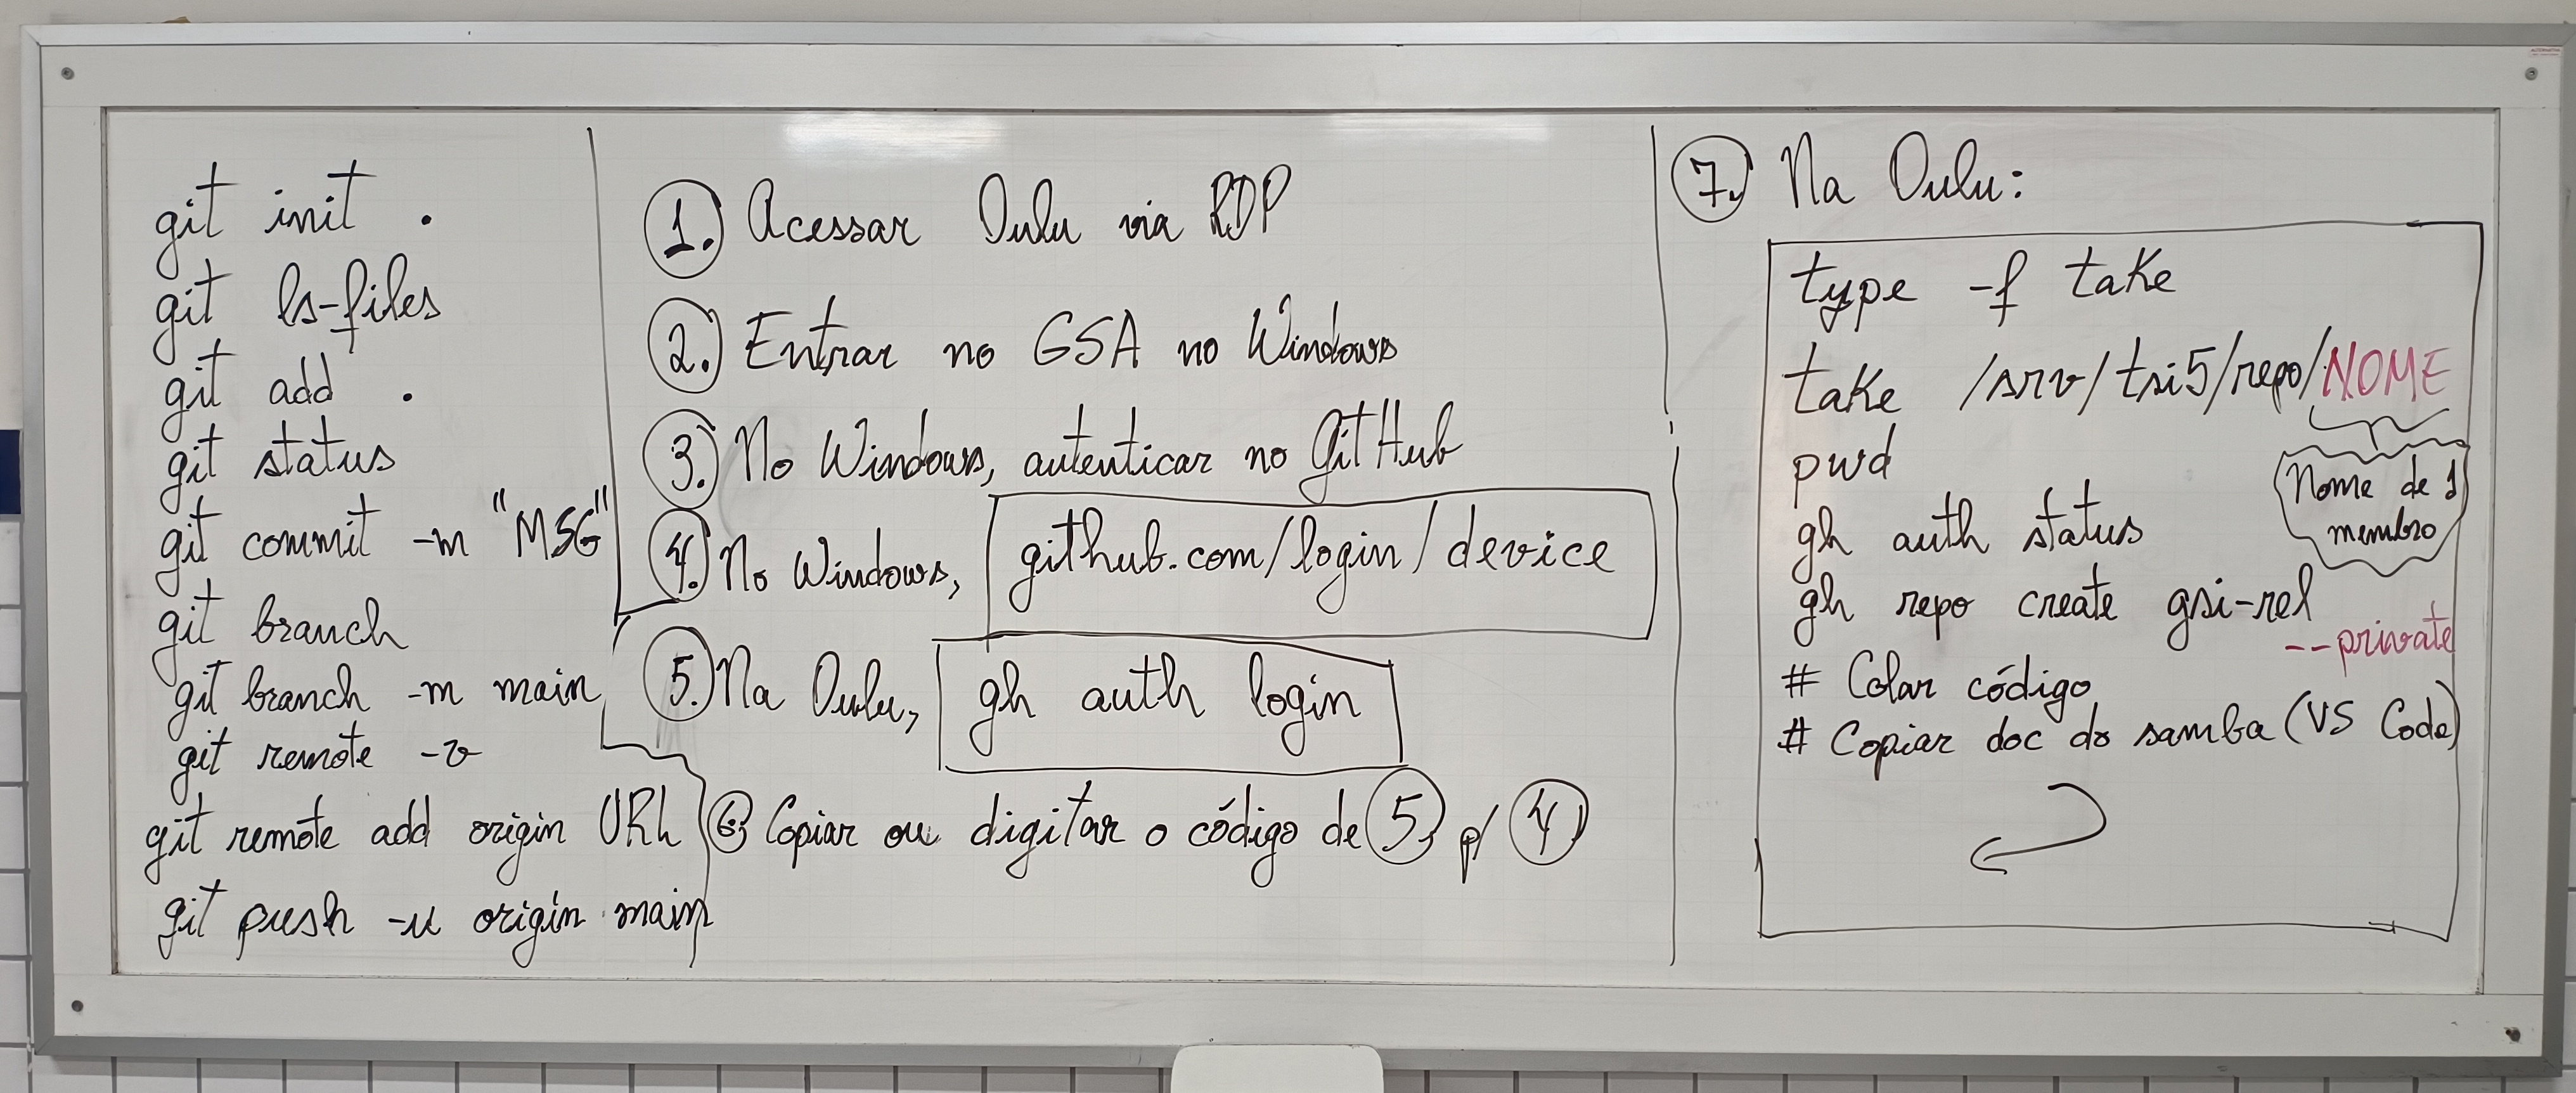 git init .
git ls-files
git add .
git status
git commit -m "MSG"
git branch
git branch -m main
git remote -v
git remote add origin URL
git push -u origin main
1. Acessar Oulu via RDP
2. Entrar no GSA no Windows
3. No Windows, autenticar no GitHub
4. No Windows, github.com/login/device
5. Na Oulu, gh auth login
6. Copiar ou digitar o código de 5 p/ 4
7. Na Oulu:
type -f take
take /srv/tsi5/repo/NOME
Nome de 1
membro
pwd
gh auth status
gh repo create gsi-rel
--private
# Colar código
# Copiar doc do samba (VS Code)